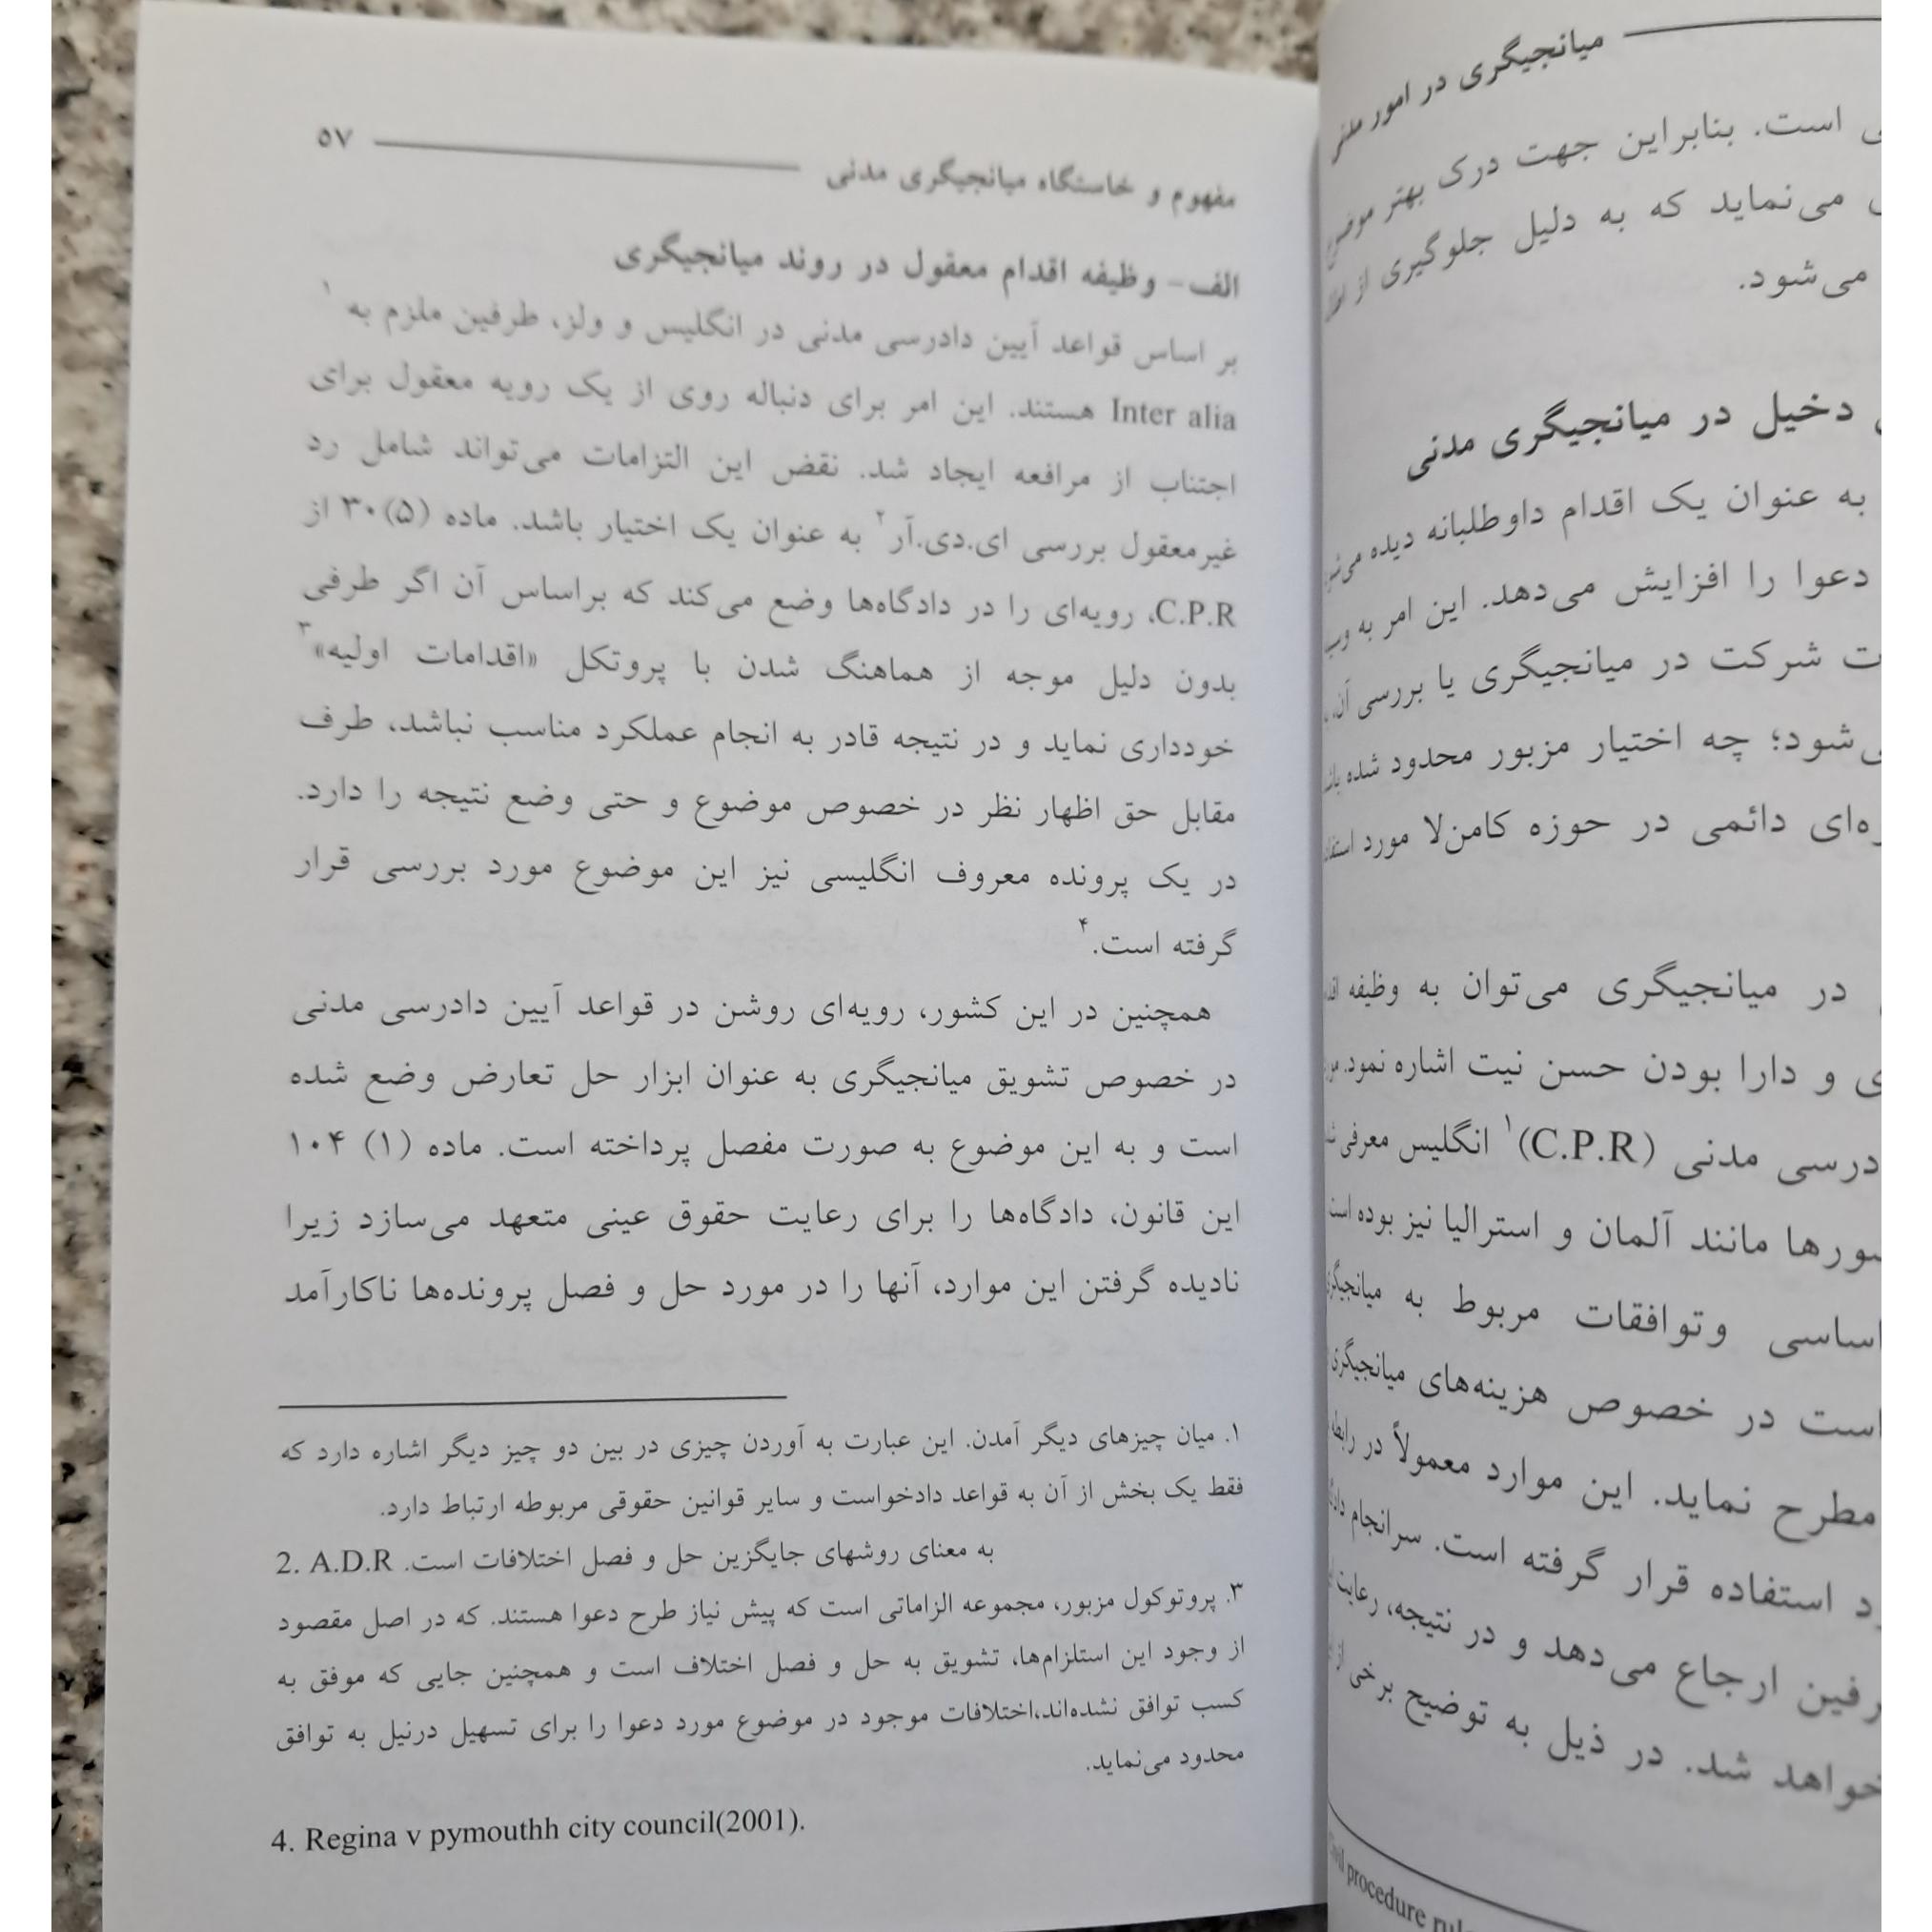 میانجیگری در امور مدنی
است. بنابراین جهت درک بهتر موضوع
می‌نماید که به دلیل جلوگیری از
می‌شود.
دخیل در میانجیگری مدنی
به عنوان یک اقدام داوطلبانه دیده
دعوا را افزایش می‌دهد. این امر به
شرکت در میانجیگری یا بررسی آن،
چه اختیار مزبور محدود شده
دائمی در حوزه کامن‌لا مورد
در میانجیگری می‌توان به وظیفه
و دارا بودن حسن نیت اشاره نمود.
مدنی (C.P.R)۱ انگلیس معرفی
مانند آلمان و استرالیا نیز بوده است
وتوافقات مربوط به
در خصوص هزینه‌های میانجیگری
مطرح نماید. این موارد معمولاً در رابطه
استفاده قرار گرفته است. سرانجام
ارجاع می‌دهد و در نتیجه، رعایت
شد. در ذیل به توضیح برخی از
procedure
۵۷
مفهوم و خاستگاه میانجیگری مدنی
الف- وظیفه اقدام معقول در روند میانجیگری
بر اساس قواعد آیین دادرسی مدنی در انگلیس و ولز، طرفین ملزم به ۱
Inter alia هستند. این امر برای دنباله روی از یک رویه معقول برای
اجتناب از مرافعه ایجاد شد. نقض این التزامات می‌تواند شامل رد
غیرمعقول بررسی ای.دی.آر۲ به عنوان یک اختیار باشد. ماده (۵)۳۰ از
C.P.R، رویه‌ای را در دادگاه‌ها وضع می‌کند که براساس آن اگر طرفی
بدون دلیل موجه از هماهنگ شدن با پروتکل «اقدامات اولیه»۳
خودداری نماید و در نتیجه قادر به انجام عملکرد مناسب نباشد، طرف
مقابل حق اظهار نظر در خصوص موضوع و حتی وضع نتیجه را دارد.
در یک پرونده معروف انگلیسی نیز این موضوع مورد بررسی قرار
گرفته است.۴
همچنین در این کشور، رویه‌ای روشن در قواعد آیین دادرسی مدنی
در خصوص تشویق میانجیگری به عنوان ابزار حل تعارض وضع شده
است و به این موضوع به صورت مفصل پرداخته است. ماده (۱) ۱۰۴
این قانون، دادگاه‌ها را برای رعایت حقوق عینی متعهد می‌سازد زیرا
نادیده گرفتن این موارد، آنها را در مورد حل و فصل پرونده‌ها ناکارآمد
۱. میان چیزهای دیگر آمدن. این عبارت به آوردن چیزی در بین دو چیز دیگر اشاره دارد که
فقط یک بخش از آن به قواعد دادخواست و سایر قوانین حقوقی مربوطه ارتباط دارد.
2. A.D.R به معنای روشهای جایگزین حل و فصل اختلافات است.
۳. پروتوکول مزبور، مجموعه الزاماتی است که پیش نیاز طرح دعوا هستند. که در اصل مقصود
از وجود این استلزام‌ها، تشویق به حل و فصل اختلاف است و همچنین جایی که موفق به
کسب توافق نشده‌اند،اختلافات موجود در موضوع مورد دعوا را برای تسهیل درنیل به توافق
محدود می‌نماید.
4. Regina v pymouthh city council(2001).